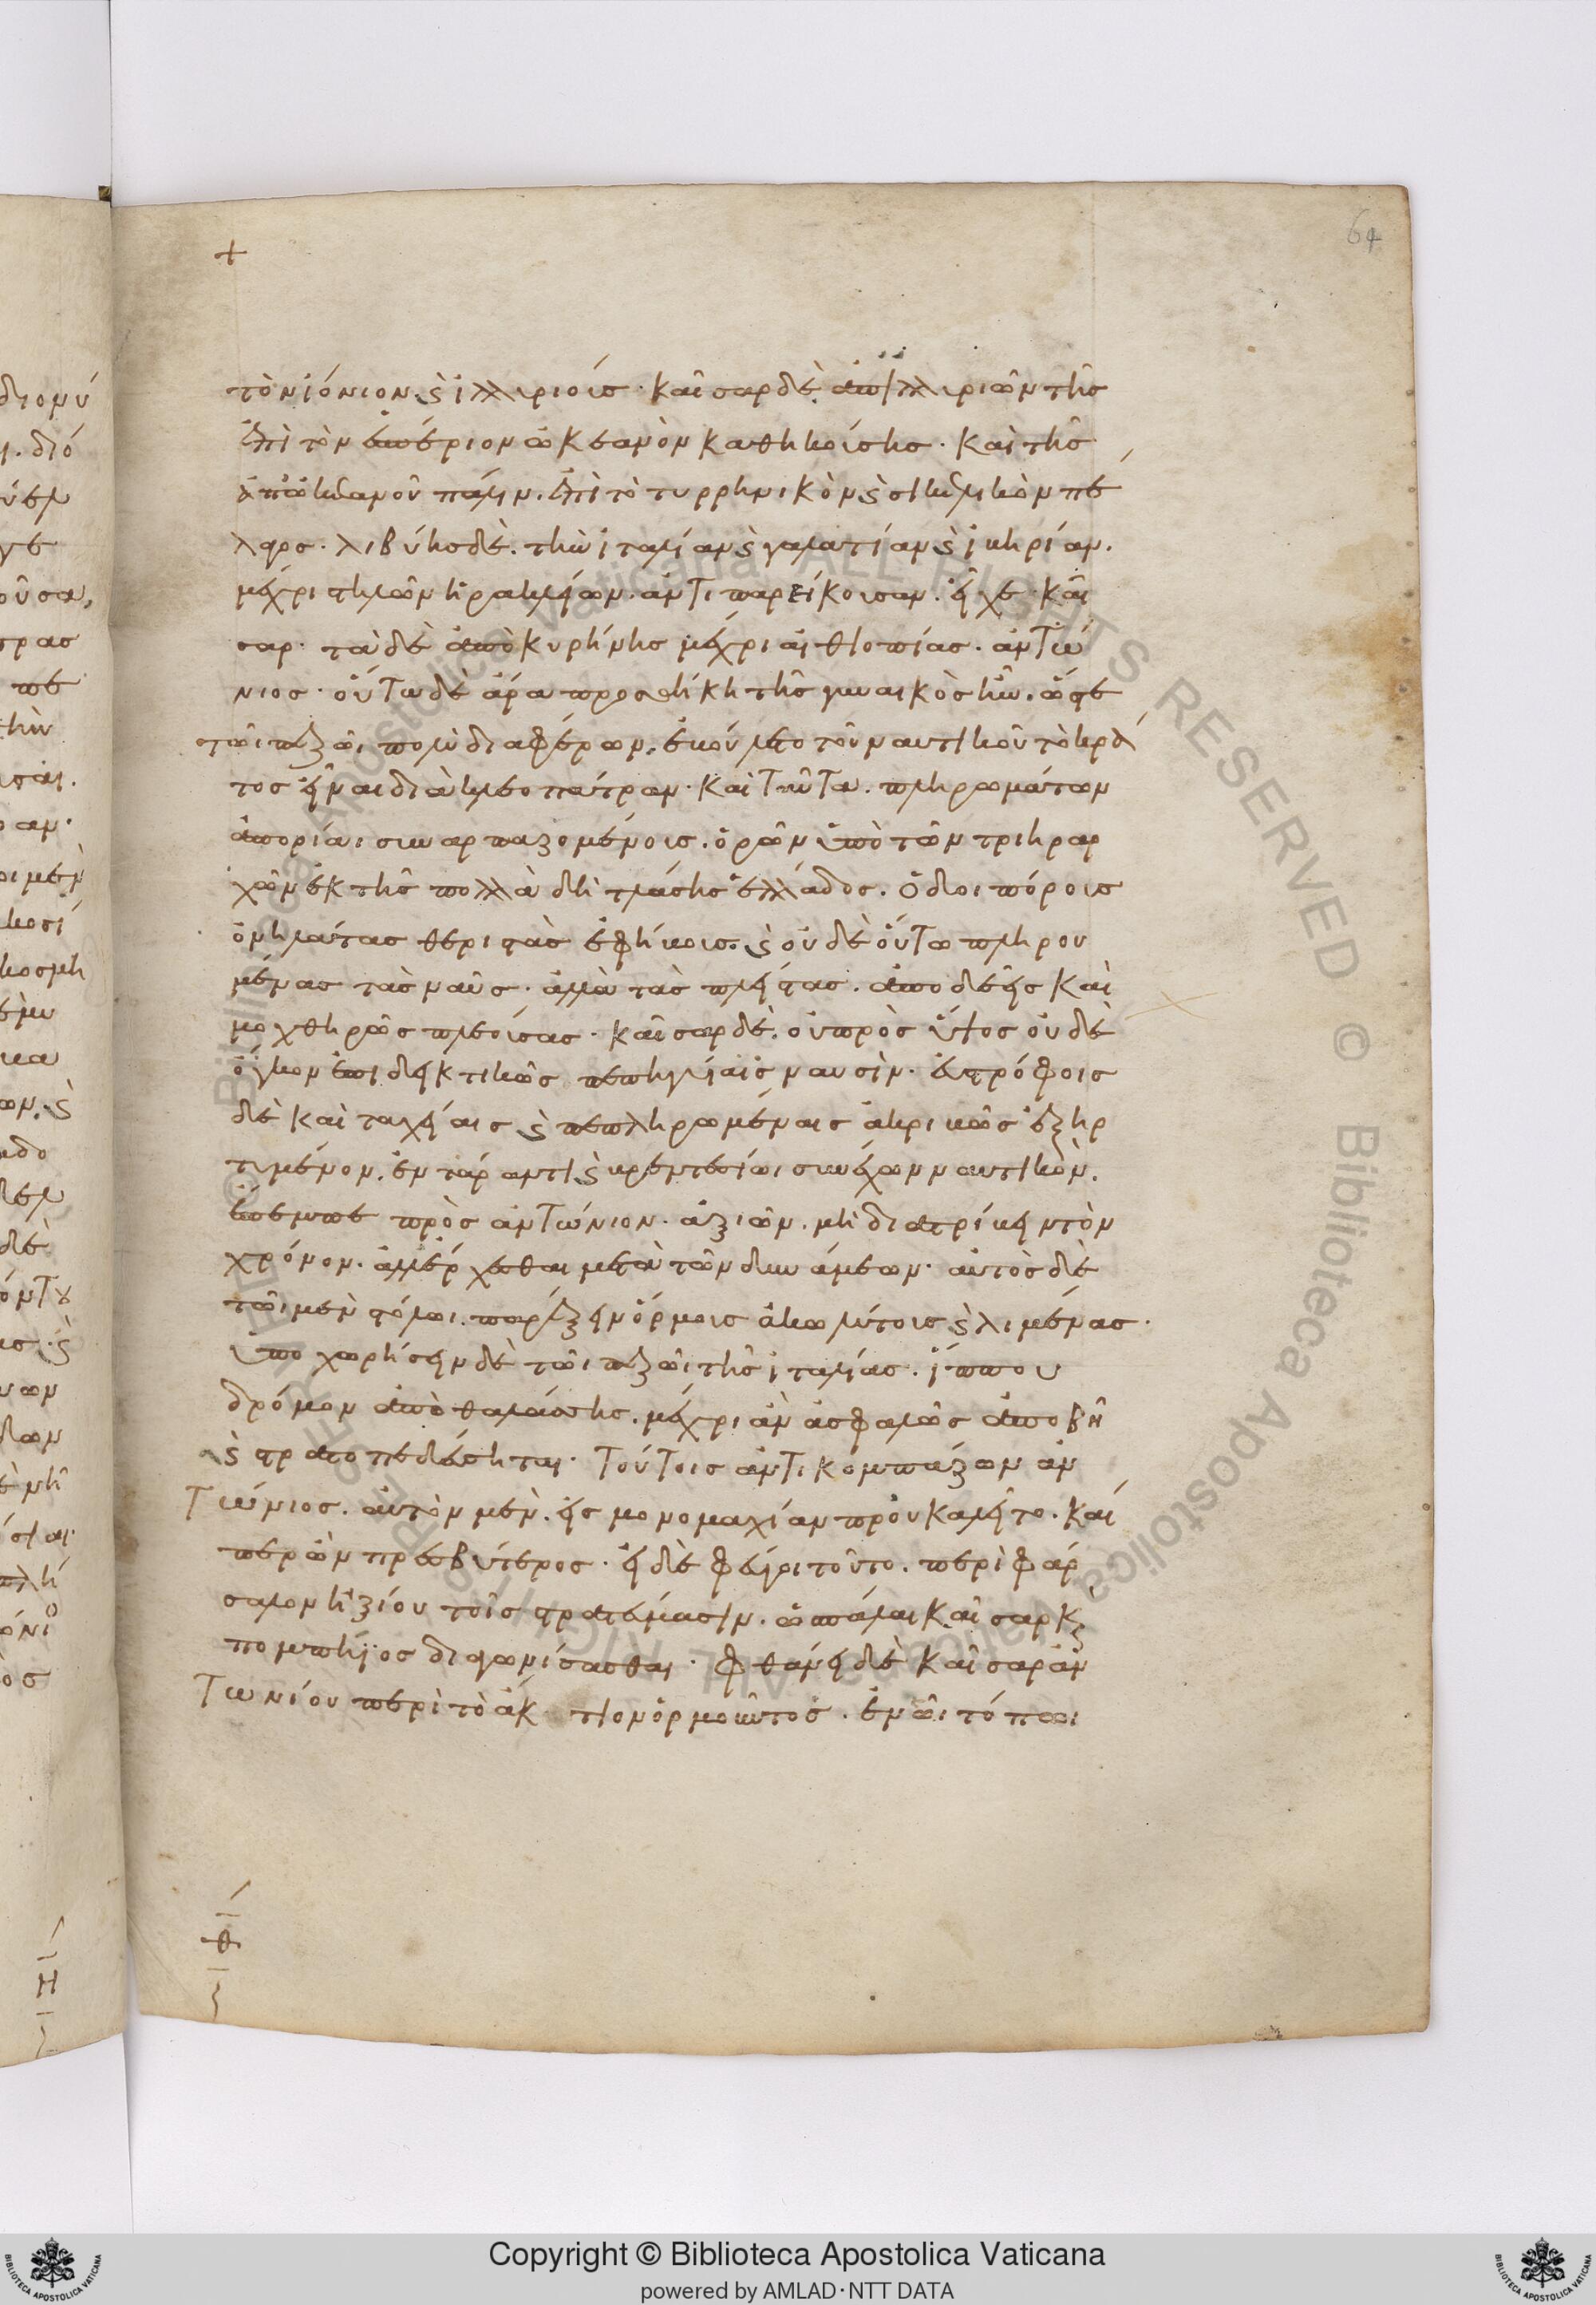 64
τὸν ἰόνιον ϗ ἰλλυριούς· καῖσαρ δὲ ἀπ ἰλλυριῶν τῆς
ἐπὶ τὸν ἑσπέριον ὠκεανὸν καθηκούσης· καὶ τῆς
ἀπ ὠκεανοῦ πάλιν. ἐπὶ τὸ τυρρηνικὸν ϗ σικελικὸν πέ
λαγος· λιβύης δὲ. τὴν ἰταλίαν ϗ γαλατίαν ϗ ἰβηρίαν.
μέχρι στηλῶν ἡρακλείων. ἀντιπαρείκουσαν. εἶχε καῖ
σαρ· τὰ δὲ ἀπὸ κυρήνης μέχρι αἰθιοπίας. ἀντώ
νιος· οὕτω δὲ ἄρα προσθήκη τῆς γυναικὸς ἦν. ὥστε
τῶι πεζῶι πολὺ διαφέρων. ἐβούλετο τοῦ ναυτικοῦ τὸ κρά
τος εἶναι διὰ κλεοπάτραν· καὶ ταῦτα. πληρωμάτων
ἀπορίαι συναρπαζομένους. ὁρῶν ὑπὸ τῶν τριηραρ
χῶν ἐκ τῆς πολλὰ δὴ τλάσης ἑλλάδος. ὁδοιπόρους
ὀνηλάτας θεριστὰς ἐφήβους. ϗ οὐδὲ οὕτω πληρου
μένας τὰς ναῦς· ἀλλὰ τὰς πλείστας. ἀποδεεῖς καὶ
μοχθηρῶς πλεούσας· καῖσαρ δὲ. οὐ πρὸς ὕψος οὐδὲ
ὄγκον ἐπιδεικτικῶς πεπηγυίαις ναυσὶν. εὐστρόφοις
δὲ καὶ ταχείαις ϗ πεπληρωμέναις ἀκριβῶς ἐξηρ
τυμένον. ἐν τάραντι ϗ βρεντεσίωι συνέχων ναυτικὸν.
ἔπεμπε πρὸς ἀντώνιον· ἀξιῶν. μὴ διατρίβειν τὸν
χρόνον. ἀλλ ἔρχεσθαι μετὰ τῶν δυνάμεων· αὐτὸς δὲ
τῶι μὲν στόλωι. παρέξειν ὅρμους ἀκωλύτους ϗ λιμένας·
ὑποχωρήσειν δὲ τῶι πεζῶι τῆς ἰταλίας. ἵππου
δρόμον ἀπὸ θαλάσσης. μέχρι ἂν ἀσφαλῶς ἀποβῆ
ϗ στρατοπεδεύσηται· τούτοις ἀντικομπάζων ἀν
τώνιος. αὐτὸν μὲν. εἰς μονομαχίαν προὐκαλεῖτο. καί
περ ὢν πρεσβύτερος· εἰ δὲ φεύγοι τοῦτο. περὶ φάρ
σαλον ἠξίου τοῖς στρατεύμασιν. ὡς πάλαι καῖσαρ κ
πομπήϊος διαγωνίσασθαι· φθάνει δὲ καῖσαρ ἀν
τωνίου περὶ τὸ ἄκτιον ὁρμοῦντος. ἐν ὧι τόπωι
θ